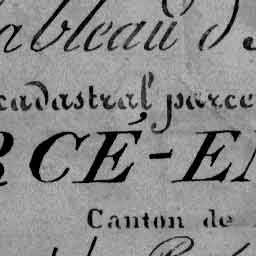 Tableau d'
cadastral parce
RCÉ-EN
Canton de